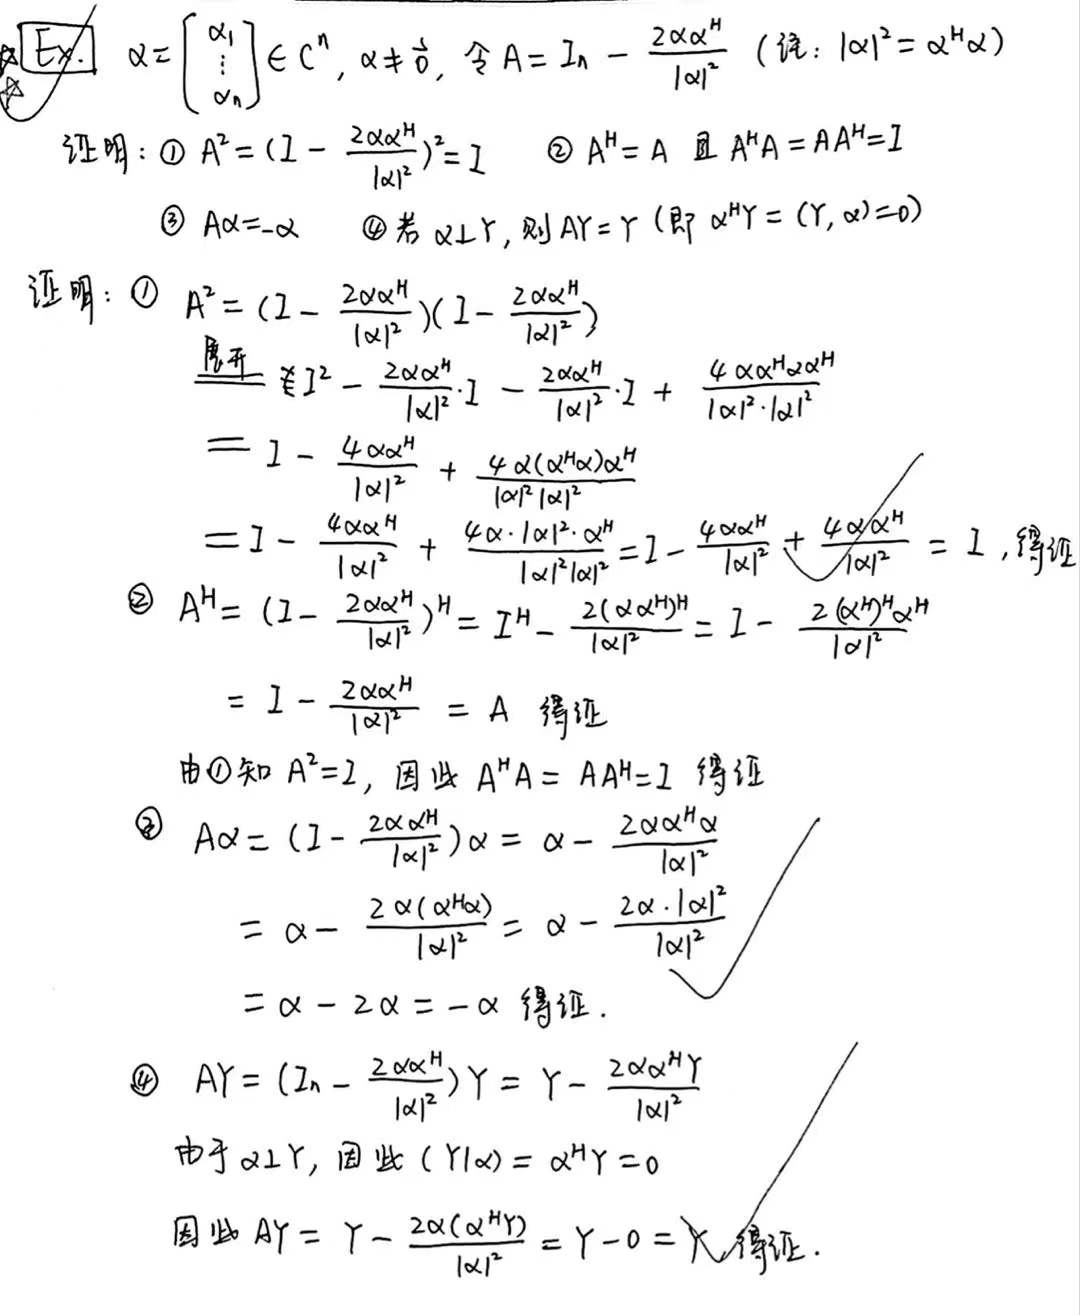 Ex. α = [α₁ ⋮ αₙ] ∈ Cⁿ, α ≠ 0⃗, 令 A = Iₙ - 2ααᴴ/|α|² (注: |α|² = αᴴα)
证明: ① A² = (I - 2ααᴴ/|α|²)² = I ② Aᴴ = A 且 AᴴA = AAᴴ = I
③ Aα = -α ④ 若 α⊥Y, 则 AY = Y (即 αᴴY = (Y, α) = 0)
证明: ① A² = (I - 2ααᴴ/|α|²)(I - 2ααᴴ/|α|²)
展开 = I² - 2ααᴴ/|α|²·I - 2ααᴴ/|α|²·I + 4ααᴴααᴴ/|α|²·|α|²
= I - 4ααᴴ/|α|² + 4α(αᴴα)αᴴ/|α|²|α|²
= I - 4ααᴴ/|α|² + 4α·|α|²·αᴴ/|α|²|α|² = I - 4ααᴴ/|α|² + 4ααᴴ/|α|² = I, 得证
② Aᴴ = (I - 2ααᴴ/|α|²)ᴴ = Iᴴ - 2(ααᴴ)ᴴ/|α|² = I - 2(αᴴ)ᴴαᴴ/|α|²
= I - 2ααᴴ/|α|² = A 得证
由①知 A² = I, 因此 AᴴA = AAᴴ = I 得证
③ Aα = (I - 2ααᴴ/|α|²)α = α - 2ααᴴα/|α|²
= α - 2α(αᴴα)/|α|² = α - 2α·|α|²/|α|²
= α - 2α = -α 得证.
④ AY = (Iₙ - 2ααᴴ/|α|²)Y = Y - 2ααᴴY/|α|²
由于 α⊥Y, 因此 (Y|α) = αᴴY = 0
因此 AY = Y - 2α(αᴴY)/|α|² = Y - 0 = Y 得证.